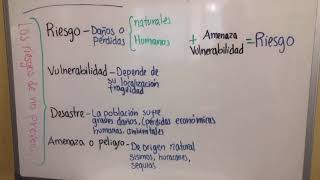 Riesgo - Daños o pérdidas
naturales
Humanos
+ Amenaza
Vulnerabilidad = Riesgo
Vulnerabilidad - Depende de
su localización
fragilidad
Desastre - La población sufre
grades daños, (pérdidas económicas
humanas, ambientales
Amenaza o peligro - De origen natural
sismos, huracanes,
sequias
Los riesgos de no